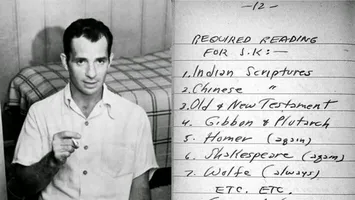 —12—
REQUIRED READING
FOR J.K:—
1. Indian Scriptures
2. Chinese "
3. Old & New Testament
4. Gibbon & Plutarch
5. Homer (again)
6. Shakespeare (again)
7. Wolfe (always)
ETC. ETC.